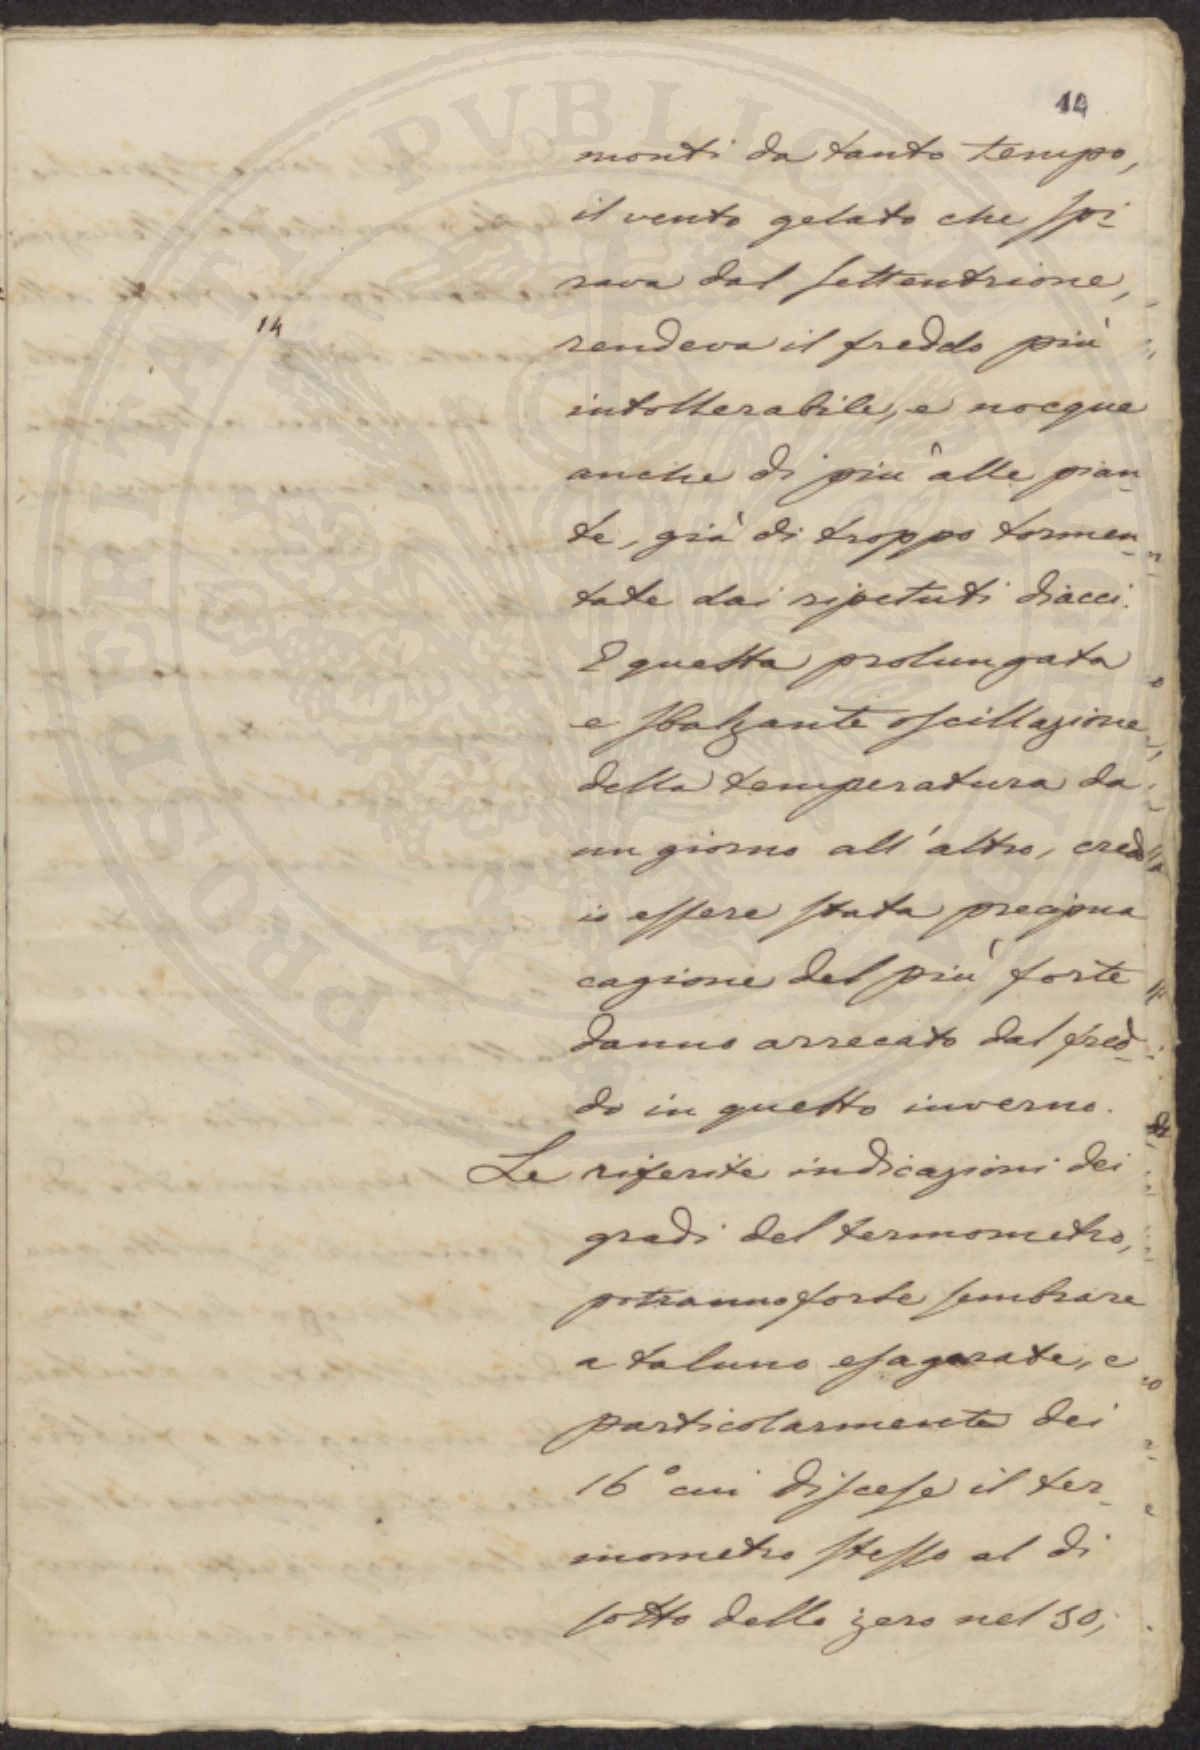 14
monti da tanto tempo,
il vento gelato che spi-
rava dal settentrione,
14
rendeva il freddo più
intollerabile, e nocque
anche di più alle pian-
te, già di troppo tormen-
tate dai ripetuti diacci.
E questa prolungata
e sbalzante oscillazione
della temperatura da
un giorno all'altro, credo
io essere stata precipua
cagione del più forte
danno arrecato dal fred-
do in questo inverno.
Le riferite indicazioni dei
gradi del termometro,
potranno forse sembrare
a taluno esagerate, e
particolarmente dei
16° cui discese il ter-
mometro stesso al di
sotto dello zero nel 50;
PROSPERITATI PVBLICAE